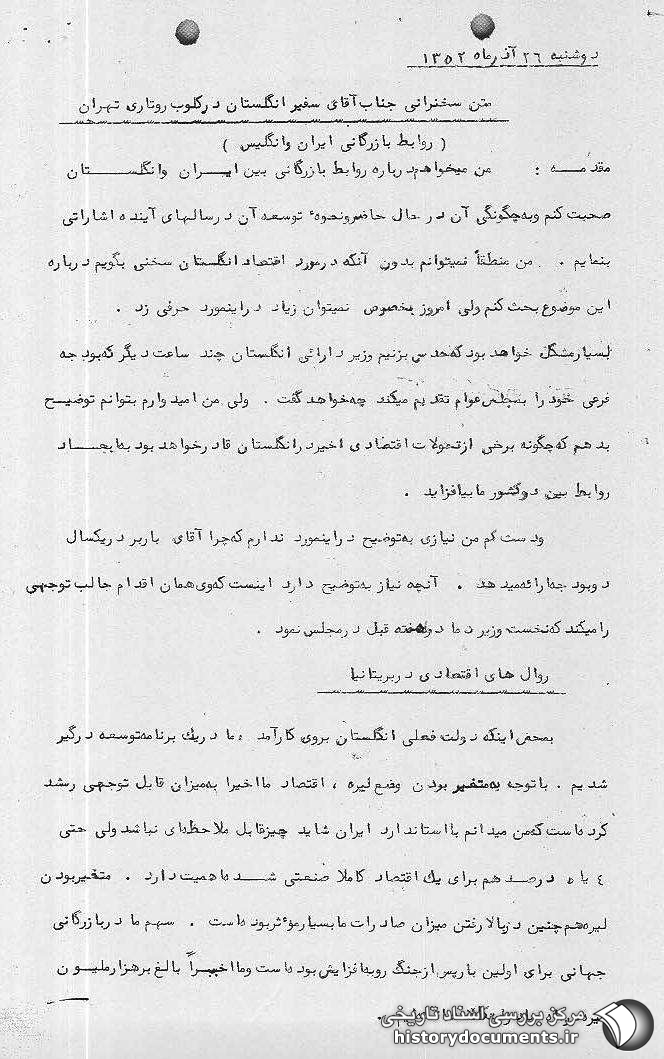 دوشنبه ٢٦ آذرماه ١٣٥٢
متن سخنرانی جناب آقای سفیر انگلستان درکلوب روتاری تهران
( روابط بازرگانی ایران وانگلیس )
مقدمه : من میخواهم درباره روابط بازرگانی بین ایران وانگلستان
صحبت کنم وبه چگونگی آن در حال حاضر ونحوه توسعه آن در سالهای آینده اشاراتی
بنمایم . من منطقاً نمیتوانم بدون آنکه درمورد اقتصاد انگلستان سخنی بگویم درباره
این موضوع بحث کنم ولی امروز بخصوص نمیتوان زیاد دراینمورد حرفی زد .
بسیارمشکل خواهد بود که حدس بزنیم وزیر دارائی انگلستان چند ساعت دیگر که بودجه
فرعی خود را بمجلس عوام تقدیم میکند چه خواهد گفت . ولی من امیدوارم بتوانم توضیح
بدهم که چگونه برخی ازتحولات اقتصادی اخیر درانگلستان قادرخواهد بود به ایجاد
روابط بین دوکشور ما بیافزاید .
ودست کم من نیازی به توضیح دراینمورد ندارم که چرا آقای باربر دریکسال
دوبودجه ارائه میدهد . آنچه نیاز به توضیح دارد اینست که وی همان اقدام جالب توجهی
را میکند که نخست وزیر شما هفته قبل درمجلس نمود .
روال های اقتصادی دربریتانیا
بمحض اینکه دولت فعلی انگلستان بروی کارآمد ما دریك برنامه توسعه درگیر
شدیم . با توجه به متغیر بودن وضع لیره ، اقتصاد ما اخیرا به میزان قابل توجهی رشد
کرده است که من میدانم با استاندارد ایران شاید چیزقابل ملاحظه ای نباشد ولی حتی
٤ یا ٥ درصد هم برای یك اقتصاد کاملا صنعتی شده با اهمیت دارد . متغیربودن
لیره همچنین دربالا رفتن میزان صادرات ما بسیار مؤثر بوده است . سهم ما دربازرگانی
جهانی برای اولین بار پس ازجنگ روبه افزایش بوده است وما اخیراً بالغ برهزار ملیون
مرکز بررسی اسناد تاریخی
historydocuments.ir